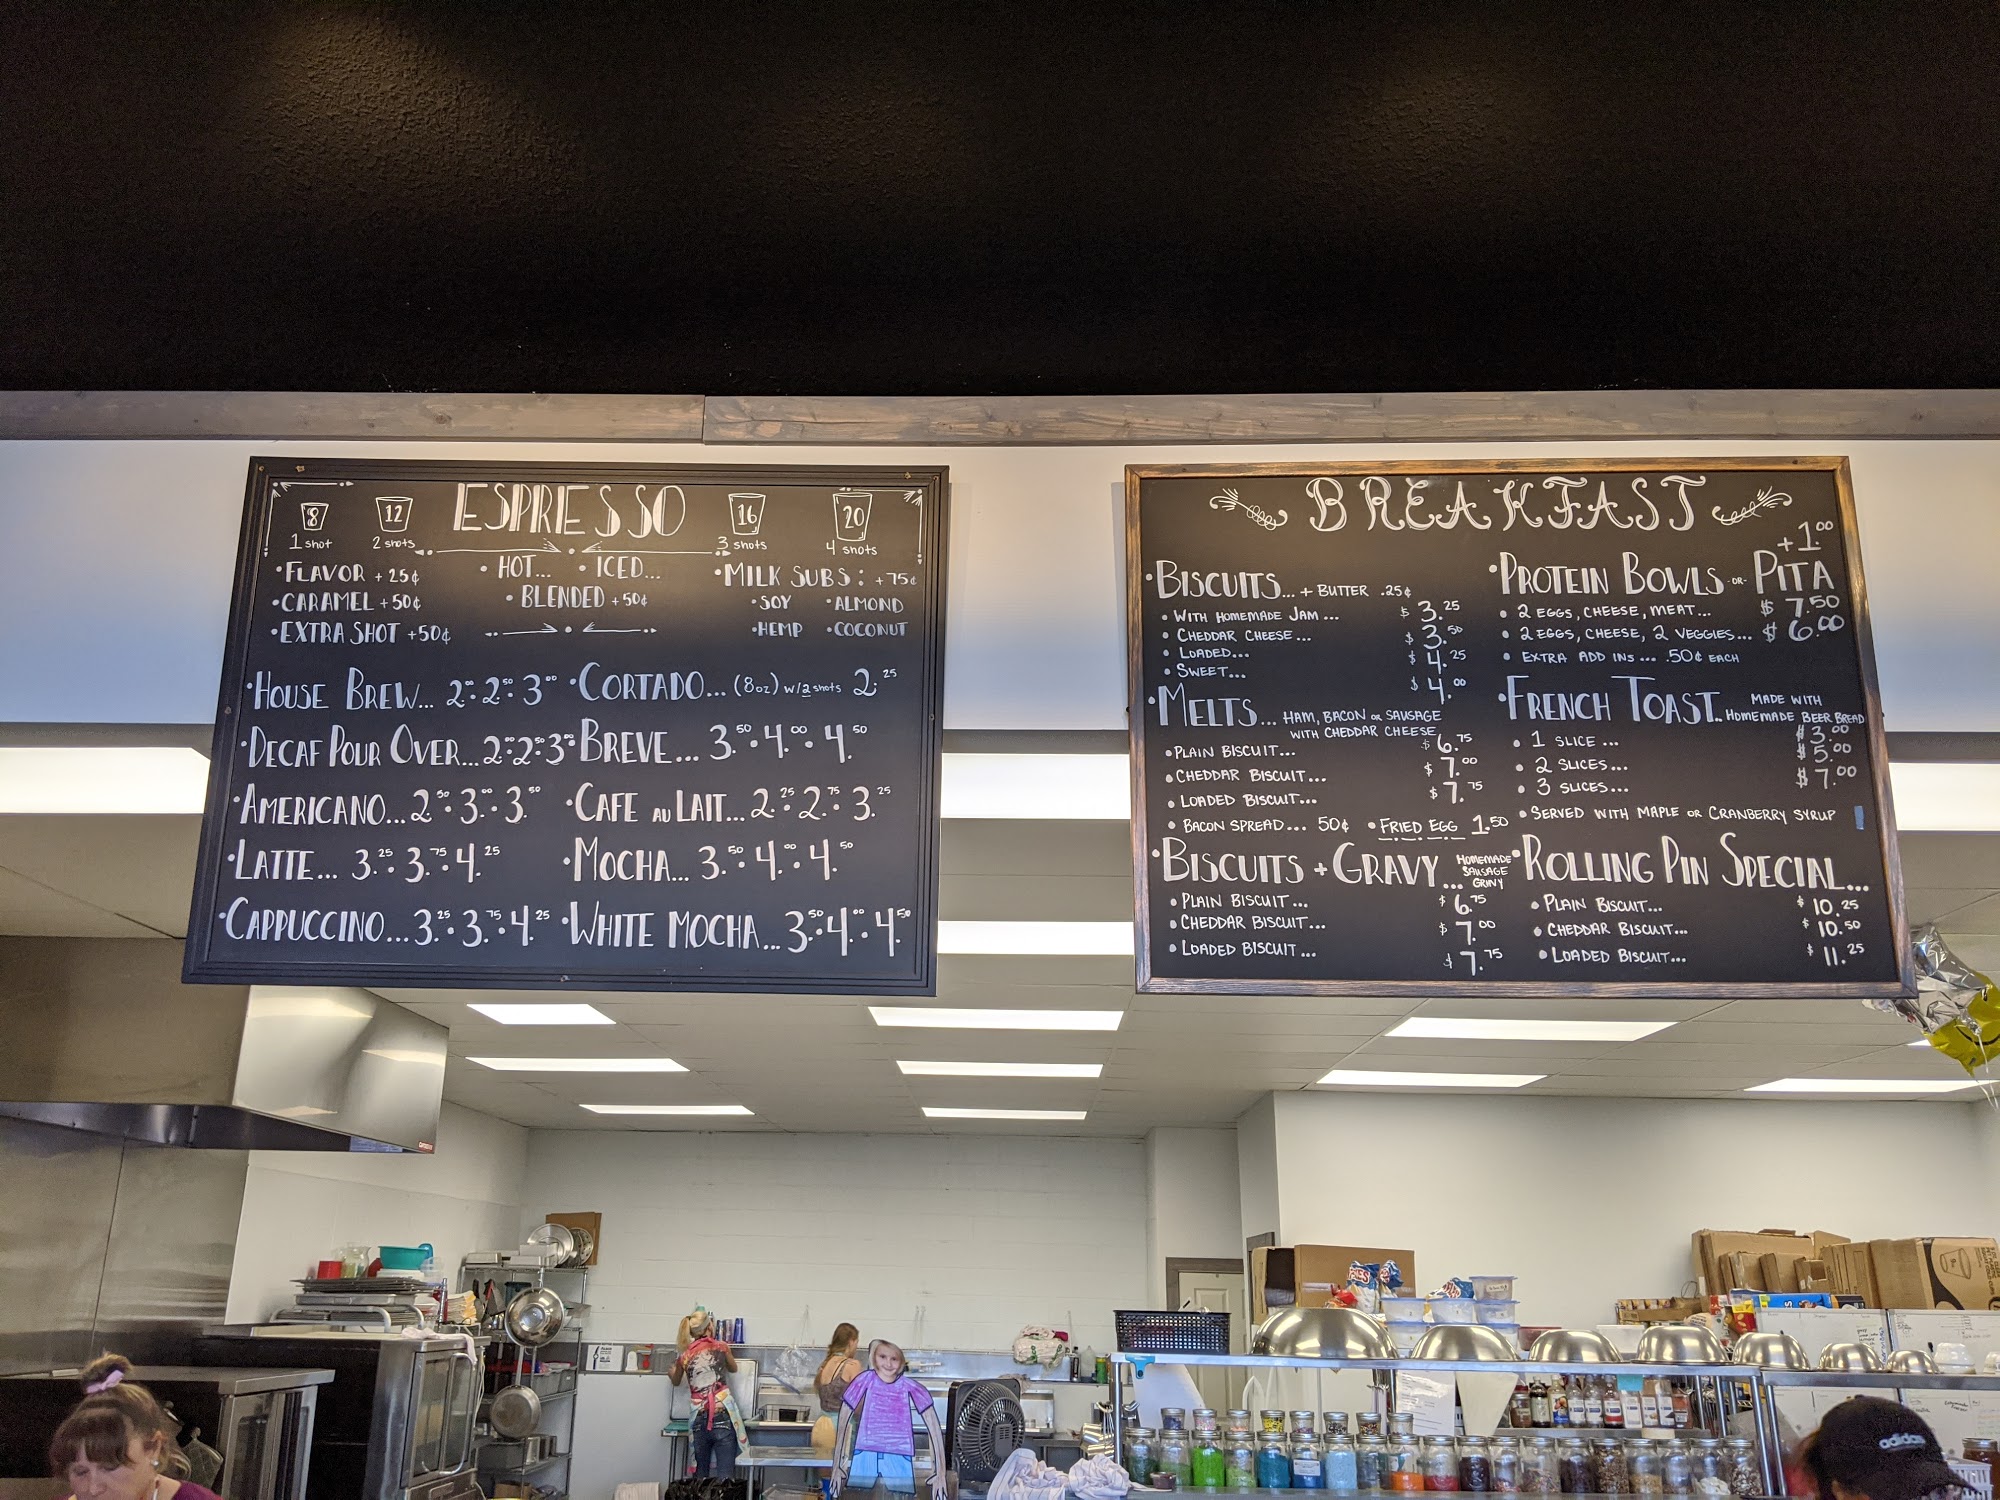 ESPRESSO
8 12 16 20
1 shot 2 shots 3 shots 4 shots
• FLAVOR + 25¢
• CARAMEL + 50¢
• EXTRA SHOT + 50¢
• HOT... • ICED...
• BLENDED + 50¢
• MILK SUBS: + 75¢
• SOY • ALMOND
• HEMP • COCONUT
• HOUSE BREW... 2.00 • 2.50 • 3.00
• DECAF POUR OVER... 2.00 • 2.50 • 3.00
• AMERICANO... 2.50 • 3.00 • 3.50
• LATTE... 3.25 • 3.75 • 4.25
• CAPPUCCINO... 3.25 • 3.75 • 4.25
• CORTADO... (8oz) w/2 shots 2.25
• BREVE... 3.50 • 4.00 • 4.50
• CAFE AU LAIT... 2.25 • 2.75 • 3.25
• MOCHA... 3.50 • 4.00 • 4.50
• WHITE MOCHA... 3.50 • 4.00 • 4.50
BREAKFAST
• BISCUITS... + BUTTER .25¢
• WITH HOMEMADE JAM... $3.25
• CHEDDAR CHEESE... $3.50
• LOADED... $4.25
• SWEET... $4.00
• MELTS... HAM, BACON OR SAUSAGE
WITH CHEDDAR CHEESE
• PLAIN BISCUIT... $6.75
• CHEDDAR BISCUIT... $7.00
• LOADED BISCUIT... $7.75
• BACON SPREAD... 50¢ • FRIED EGG 1.50
• BISCUITS + GRAVY... HOMEMADE
SAUSAGE
GRAVY
• PLAIN BISCUIT... $6.75
• CHEDDAR BISCUIT... $7.00
• LOADED BISCUIT... $7.75
+1.00
• PROTEIN BOWLS -OR- PITA
• 2 EGGS, CHEESE, MEAT... $7.50
• 2 EGGS, CHEESE, 2 VEGGIES... $6.00
• EXTRA ADD INS... .50¢ EACH
• FRENCH TOAST.. MADE WITH
HOMEMADE BEER BREAD
• 1 SLICE... $3.00
• 2 SLICES... $5.00
• 3 SLICES... $7.00
• SERVED WITH MAPLE OR CRANBERRY SYRUP
• ROLLING PIN SPECIAL...
• PLAIN BISCUIT... $10.25
• CHEDDAR BISCUIT... $10.50
• LOADED BISCUIT... $11.25
adidas